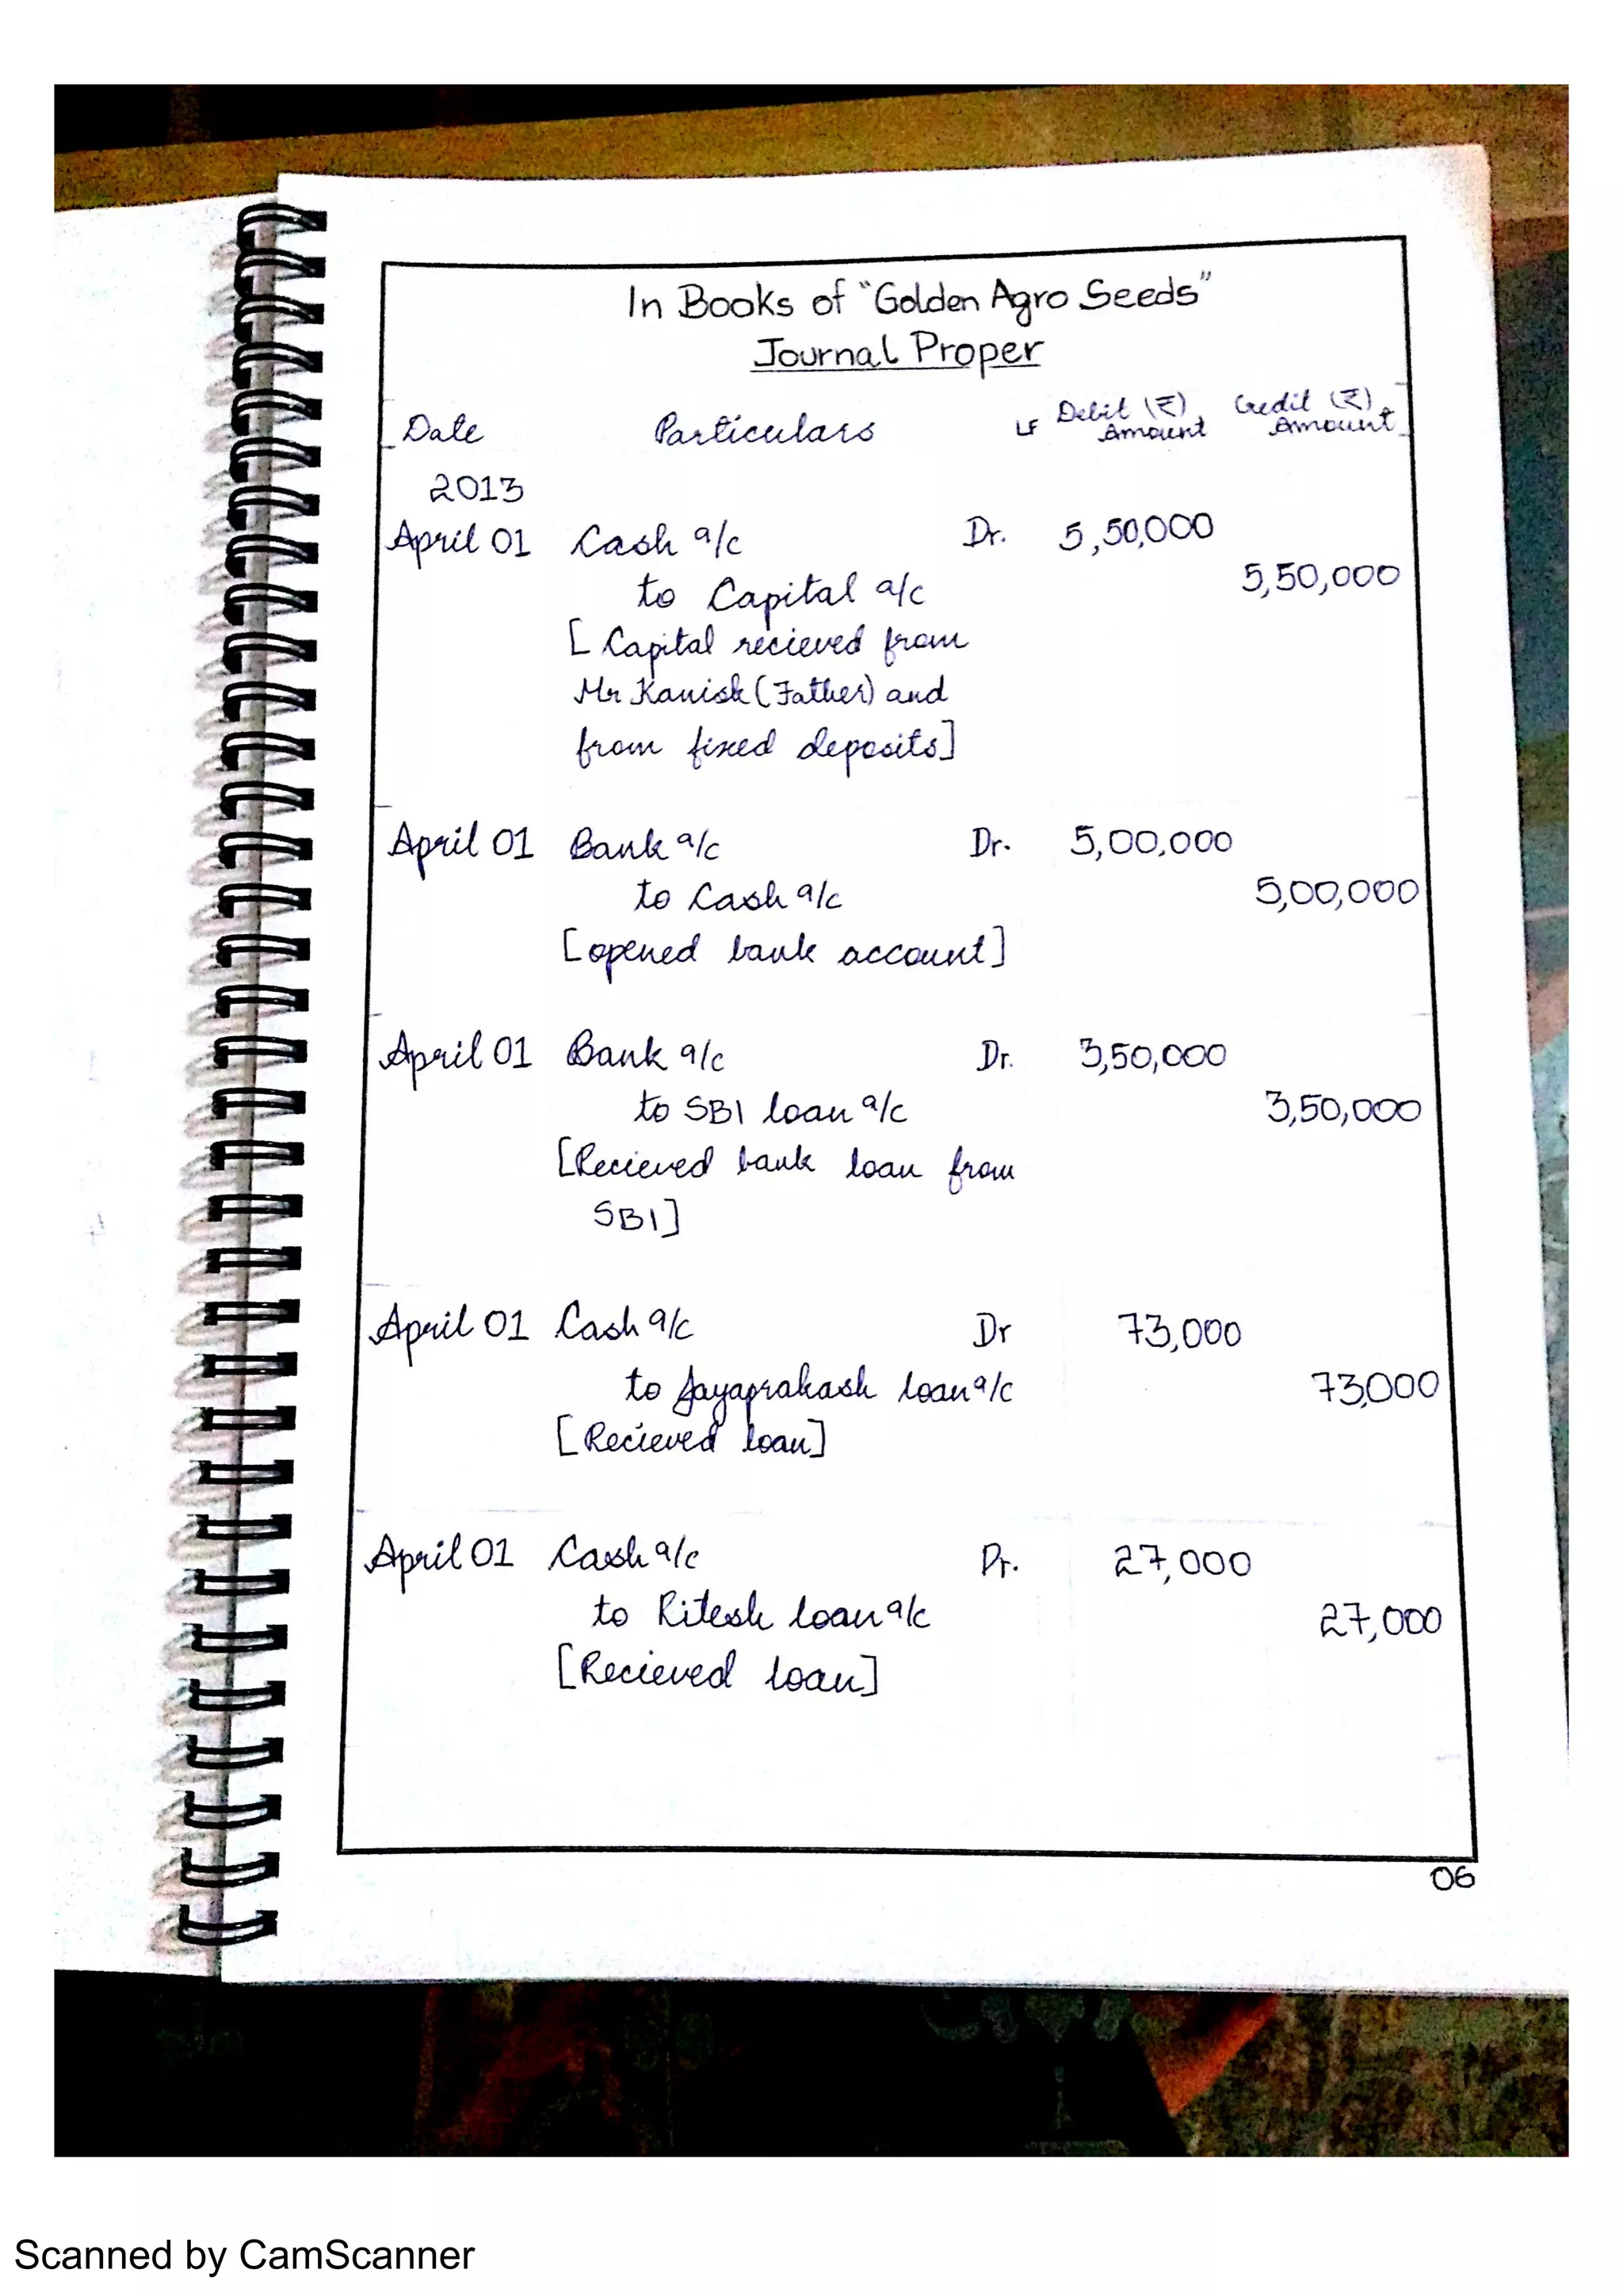 In Books of "Golden Agro Seeds"
Journal Proper
Date Particulars LF Debit (₹) Amount Credit (₹) Amount
2013
April 01 Cash a/c Dr. 5,50,000
to Capital a/c 5,50,000
[ Capital recieved from
Mr Kanisk (Father) and
from fixed deposits]
April 01 Bank a/c Dr. 5,00,000
to Cash a/c 5,00,000
[opened bank account]
April 01 Bank a/c Dr. 3,50,000
to SBI loan a/c 3,50,000
[Recieved bank loan from
SBI]
April 01 Cash a/c Dr 73,000
to Jayaprakash loan a/c 73,000
[Recieved loan]
April 01 Cash a/c Dr. 27,000
to Ritesh loan a/c 27,000
[Recieved loan]
06
Scanned by CamScanner